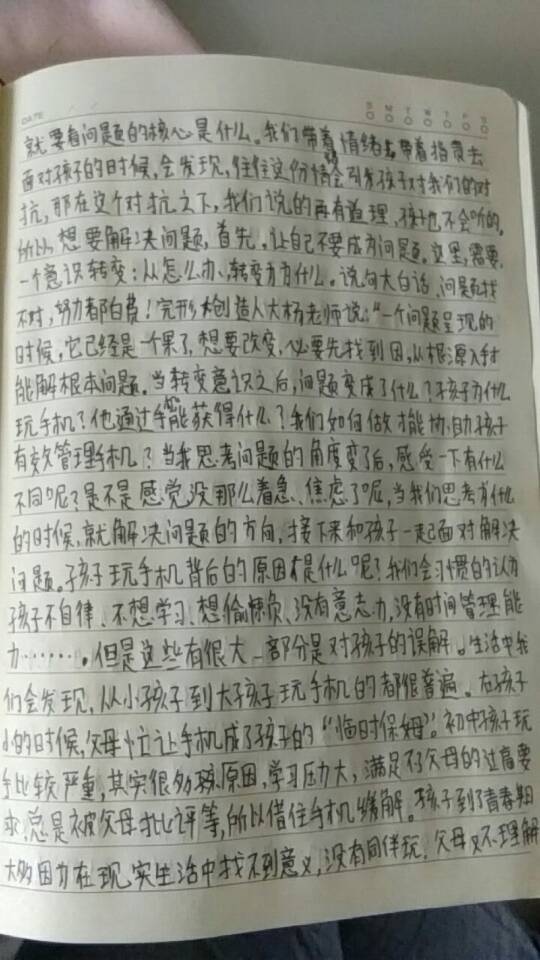 DATE
S M T W T F S
就要看问题的核心是什么。我们带着情绪去,带着指责去
面对孩子的时候,会发现,往往这份情绪会引发孩子对我们的对
抗,那在这个对抗之下,我们说的再有道理,孩子也不会听的。
所以,想要解决问题,首先,让自己不要成为问题。这里,需要
一个意识转变:从怎么办,转变为为什么。说句大白话,问题找
不对,努力都白费!完形 创造人大杨老师说:“一个问题呈现的
时候,它已经是一个果了,想要改变,必要先找到因,从根源入手才
能解根本问题。当转变意识之后,问题变成了什么?孩子为什么
玩手机?他通过手机能获得什么?我们如何做才能协助孩子
有效管理手机?当我思考问题的角度变了后,感受一下有什么
不同呢?是不是感觉没那么着急、焦虑了呢,当我们思考为什么
的时候,就解决问题的方向,接下来和孩子一起面对解决
问题。孩子玩手机背后的原因是什么呢?我们会习惯的认为
孩子不自律、不想学习、想偷懒、没有意志力,没有时间管理能
力……。但是这些有很大一部分是对孩子的误解。生活中我
们会发现,从小孩子到大孩子玩手机的都很普遍。在孩子
小的时候,父母忙让手机成了孩子的“临时保姆”。初中孩子玩
手比较严重,其实很多 原因,学习压力大,满足不了父母的过高要
求,总是被父母批评等,所以借住手机缓解。孩子到了青春期
大多因为在现实生活中找不到意义,没有同伴玩,父母又不理解